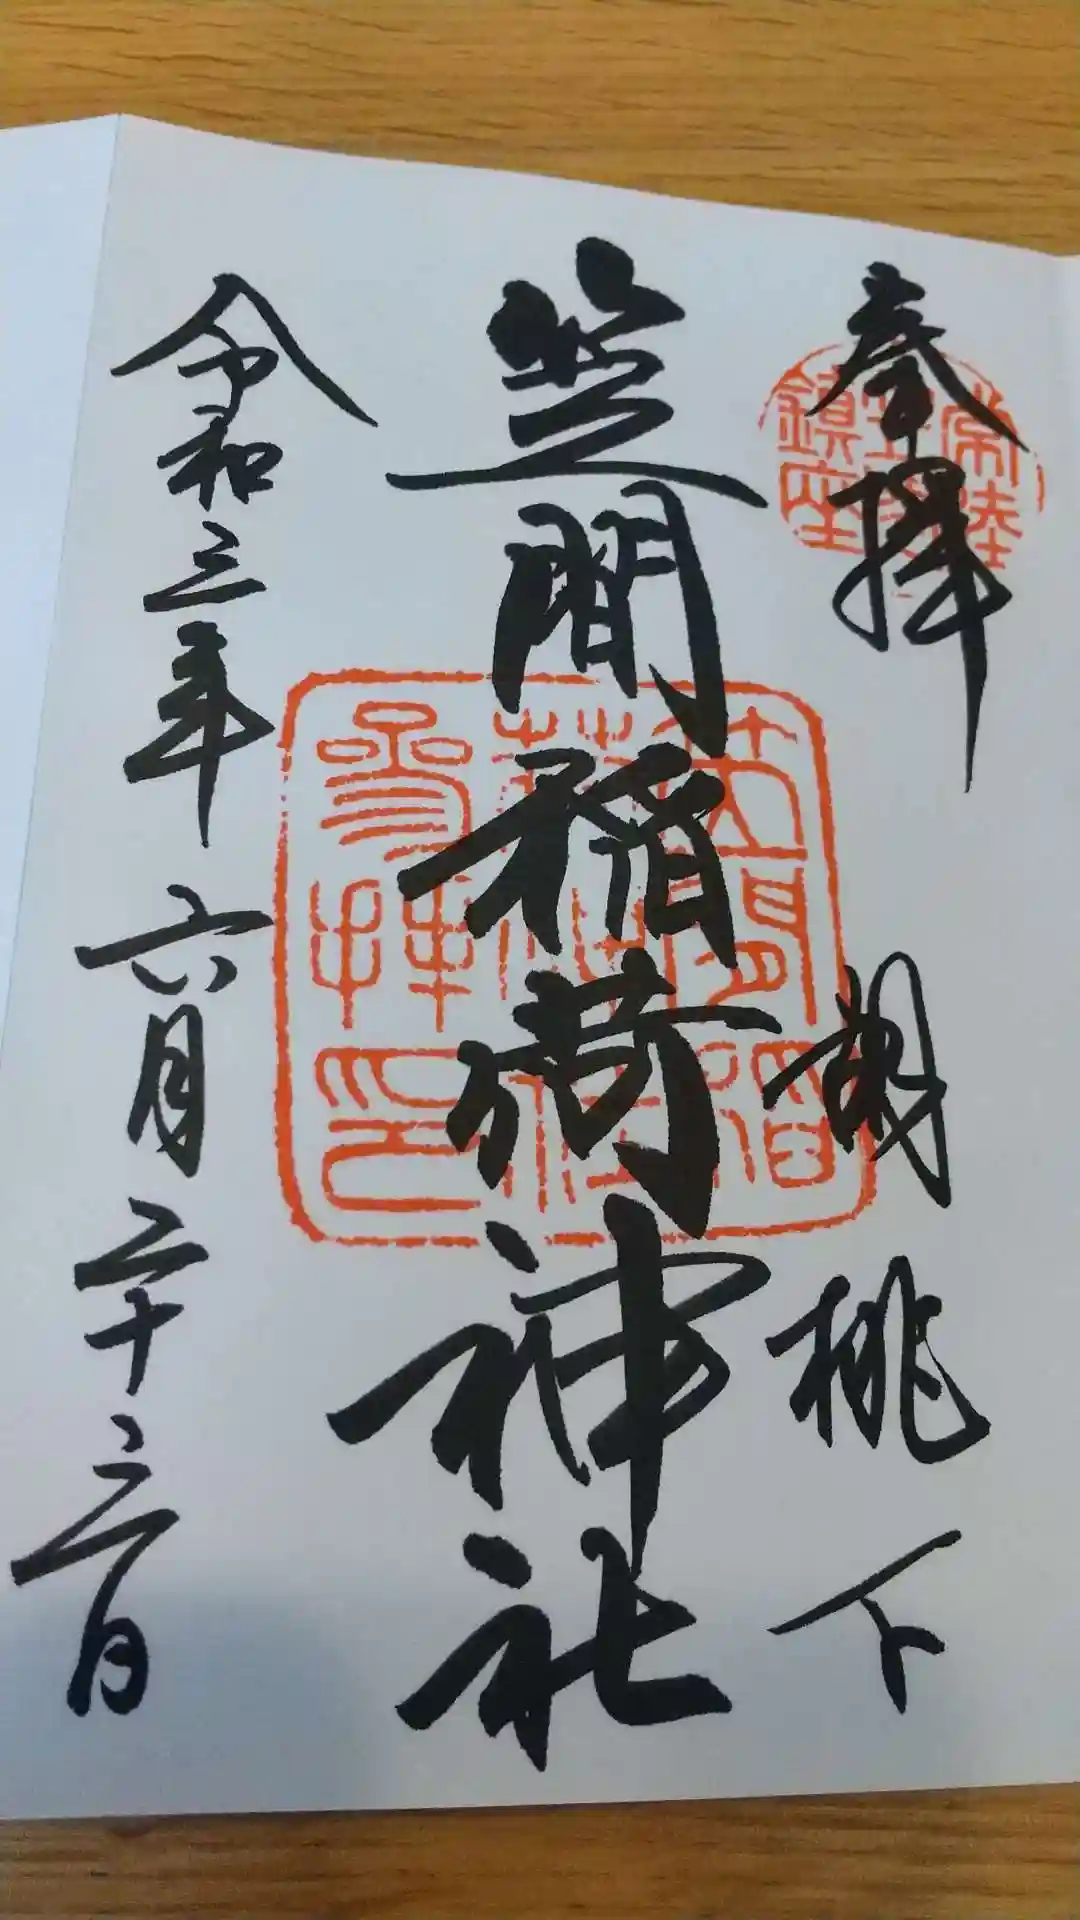 奉拝
胡桃下
常陸
鎮座
笠間稲荷神社
笠間稲
荷神社
参拝印
令和三年六月二十三日